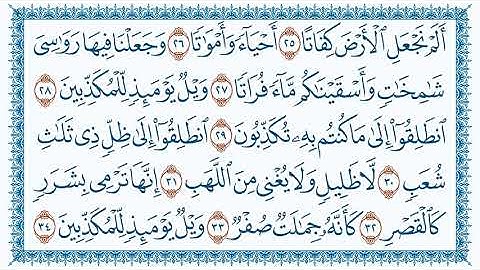 أَلَمْ نَجْعَلِ ٱلْأَرْضَ كِفَاتًا ٢٥ أَحْيَآءً وَأَمْوَٰتًا ٢٦ وَجَعَلْنَا فِيهَا رَوَٰسِىَ
شَٰمِخَٰتٍ وَأَسْقَيْنَٰكُم مَّآءً فُرَاتًا ٢٧ وَيْلٌ يَوْمَئِذٍ لِّلْمُكَذِّبِينَ ٢٨
ٱنطَلِقُوٓا۟ إِلَىٰ مَا كُنتُم بِهِۦ تُكَذِّبُونَ ٢٩ ٱنطَلِقُوٓا۟ إِلَىٰ ظِلٍّ ذِى ثَلَٰثِ
شُعَبٍ ٣٠ لَّا ظَلِيلٍ وَلَا يُغْنِى مِنَ ٱللَّهَبِ ٣١ إِنَّهَا تَرْمِى بِشَرَرٍ
كَٱلْقَصْرِ ٣٢ كَأَنَّهُۥ جِمَٰلَتٌ صُفْرٌ ٣٣ وَيْلٌ يَوْمَئِذٍ لِّلْمُكَذِّبِينَ ٣٤